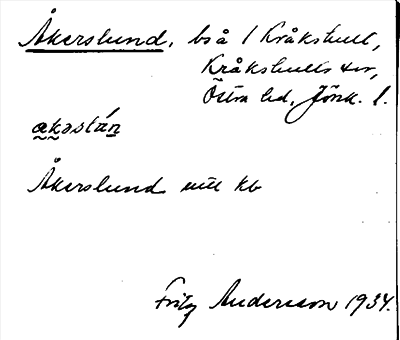 Åkerslund, bs å 1 Kråkshult,
Kråkshults sn,
Östra hd, Jönk. l.
Åkerslund enl kb
Fritz Andersson 1934.